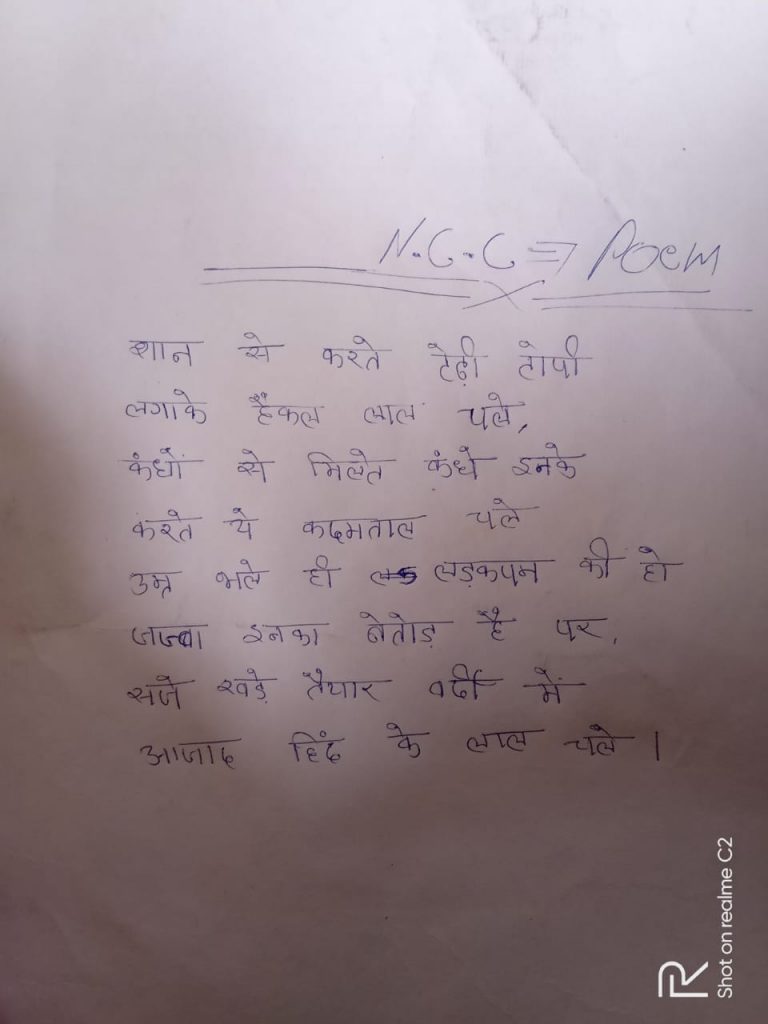 N.C.C ⇒ Poem
शान से करते टेढ़ी टोपी
लगाके हैंकल लाल चले,
कंधों से मिलते कंधे इनके
करते ये कदमताल चले
उम्र भले ही लड़कपन की हो
जज्बा इनका बेतोड़ है पर,
सजे खड़े तैयार वर्दी में
आजाद हिंद के लाल चले ।
Shot on realme C2